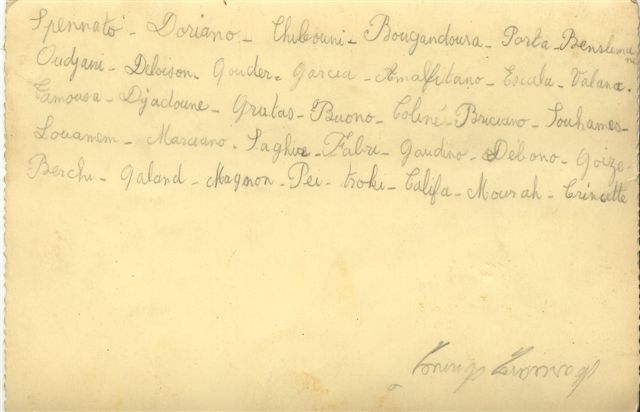 Spennato - Doriano - Chibouni - Bougandoura - Porta - Benslimani
Oudjani - Deloison - Gouder - Garcia - Amalfitano - Escala - Valana -
Famousa - Djadoune - Gratas - Buono - Coliné - Briciano - Souhames -
Louamem - Marciano - Saghie - Fabri - Gaudino - Debono - Goize -
Berchi - Galand - Magnon - Pei - troki - Califa - Mourah - Crincette